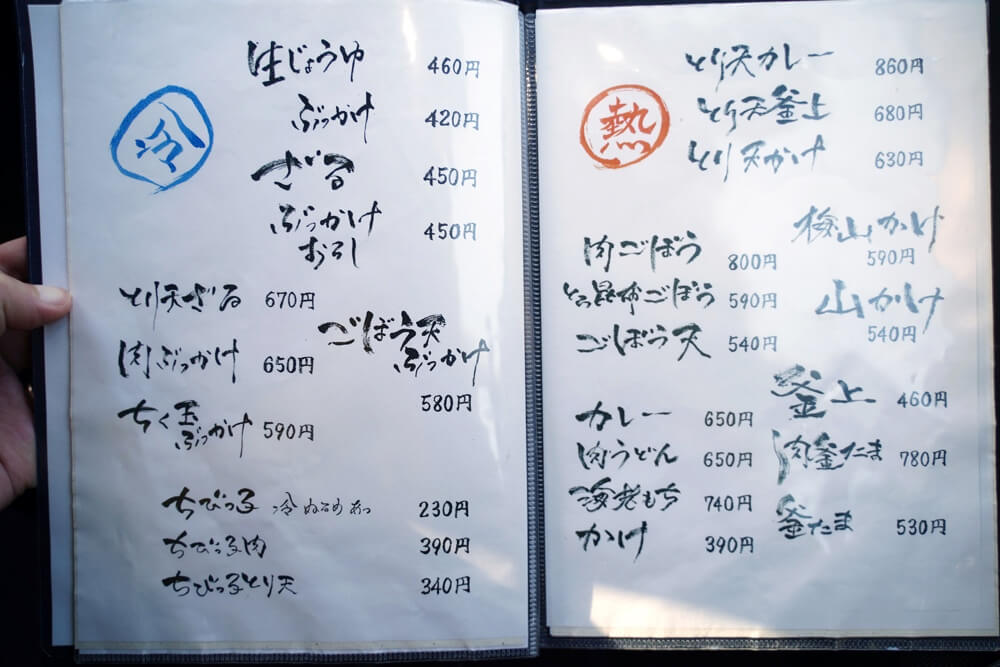 冷
生じょうゆ 460円
ぶっかけ 420円
ざる 450円
ぶっかけ 450円
おろし
とり天ざる 670円
ごぼう天
ぶっかけ
580円
肉ぶっかけ 650円
ちく玉
ぶっかけ 590円
ちびっ子 冷 ぬるめ あつ 230円
ちびっ子肉 390円
ちびっ子とり天 340円
熱
とり天カレー 860円
とり天釜上 680円
とり天かけ 630円
肉ごぼう 800円
とろ昆布ごぼう 590円
ごぼう天 540円
梅山かけ
590円
山かけ
540円
カレー 650円
肉うどん 650円
海老もち 740円
かけ 390円
釜上 460円
肉釜たま 780円
釜たま 530円